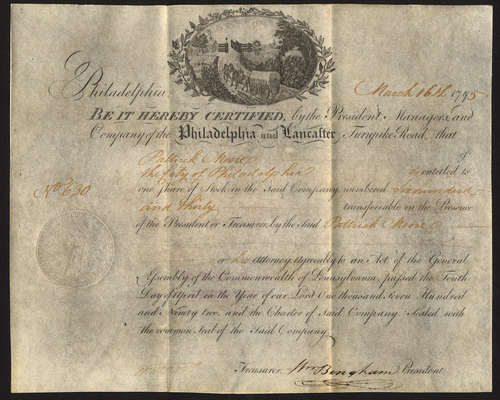 Philadelphia March 16th. 1795
BE IT HEREBY CERTIFIED, by the President, Managers, and
Company of the Philadelphia and Lancaster Turnpike Road, that
Patrick Moore of
the City of Philadelphia is entitled to
No. 630 one Share of Stock in the said Company, numbered Six hundred
and thirty transferable in the Presence
of the President or Treasurer, by the said Patrick Moore
or his Attorney. Agreeably to an Act of the General
Assembly of the Commonwealth of Pennsylvania, passed the Tenth
Day of April, in the Year of our Lord One thousand Seven Hundred
and Ninety two, and the Charter of said Company. Sealed with
the common Seal of the Said Company.
Treasurer. Wm Bingham President